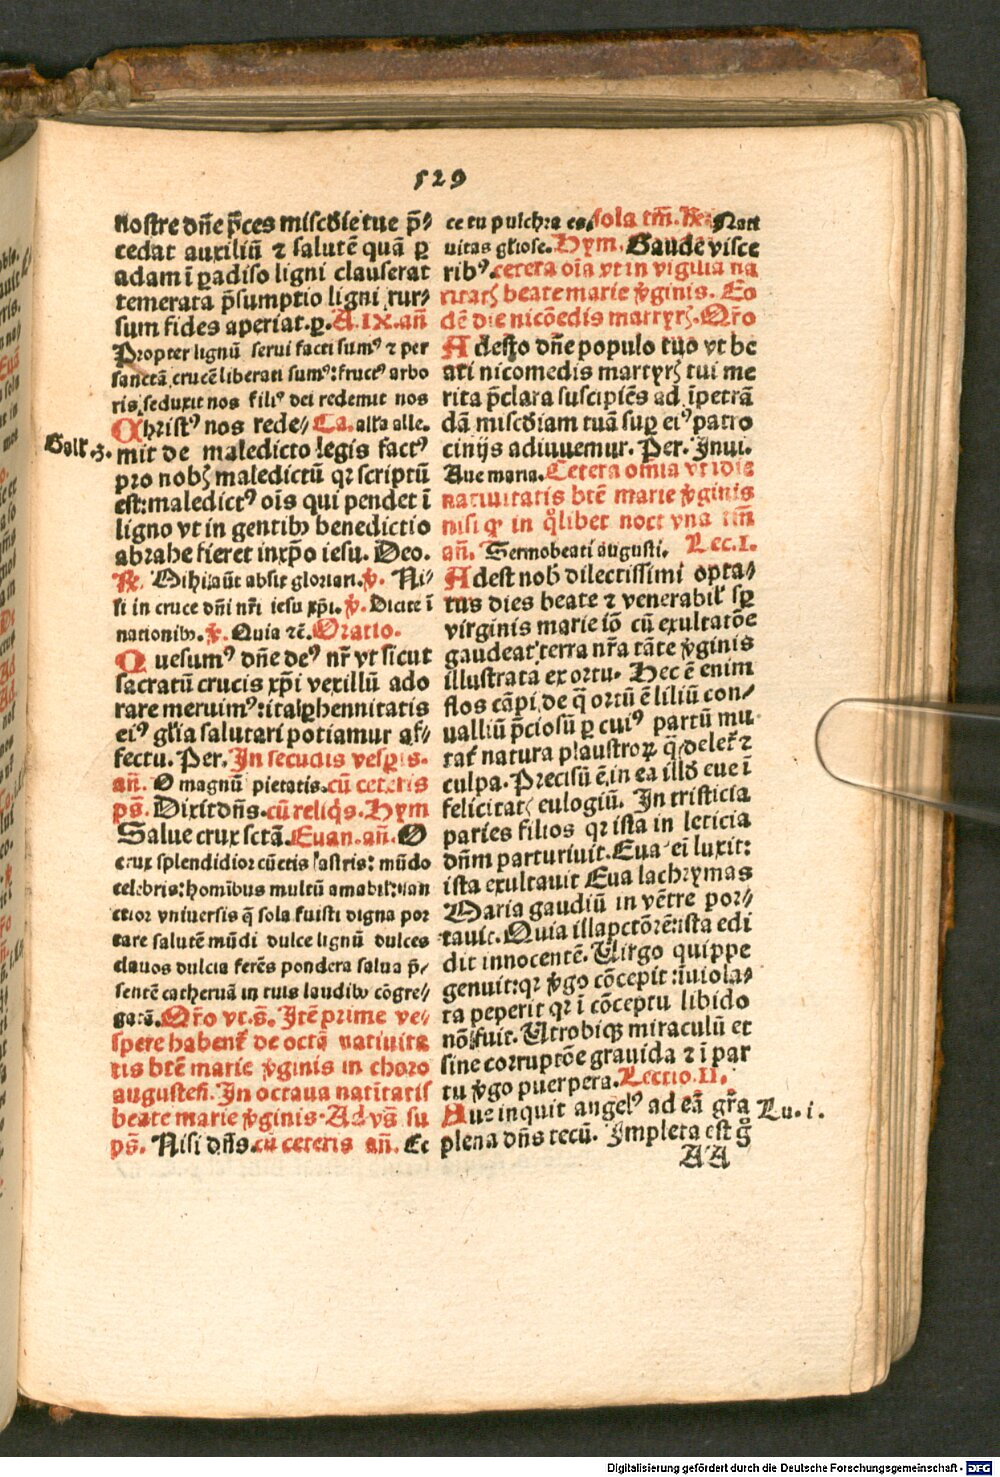 529
nostre dñe p̃ces misc̃die tue p̃⸗
cedat auxiliũ ⁊ salutẽ quã ꝑ
adam ĩ ꝑadiso ligni clauserat
temerata p̃sumptio ligni rur⸗
sum fides aperiat.ꝑ. A.IX.añ
Propter lignũ serui facti sumꝰ ⁊ per
sanctã crucẽ liberati sumꝰ: fructꝰ arbo
ris seduxit nos filiꝰ dei redemit nos
Christꝰ nos rede⸗ Ca. alľa alle.
Gall̃.3. mit de maledicto legis factꝰ
pro nobꝫ maledictũ qꝛ scriptũ
est: maledictꝰ oĩs qui pendet ĩ
ligno vt in gentibꝰ benedictio
abrahe fieret in xp̃o iesu. Deo.
℟. Mihi aũt absit gloriari. ꝟ. Ni⸗
si in cruce dñi nr̃i iesu xp̃i. ꝟ. Dicite ĩ
nationibꝰ. ꝟ. Quia ⁊c̃. Oratio.
Quesumꝰ dñe deꝰ nr̃ vt sicut
sacratũ crucis xp̃i vexillũ ado
rare meruimꝰ: ita ꝑhennitatis
eiꝰ gľia salutari potiamur af⸗
fectu. Per. In secũdis vesꝑis.
añ. O magnũ pietatis. cũ ceteris
ps̃. Dixit dñs. cũ reliq̃s. Hym
Salue crux sctã. Euan. añ. O
crux splendidior cũctis astris: mũdo
celebris: homĩbus multũ amabil: san
ctior vniuersis q̃ sola fuisti digna por
tare salutẽ mũdi dulce lignũ dulces
clauos dulcia ferẽs pondera salua p̃⸗
sentẽ cateruã in tuis laudibꝰ cõgre⸗
gatã. Or̃o vt.s̃. Itẽ prime ve⸗
spere habent̃ de octã natiuita
tis btẽ marie ꝟginis in choro
augusteñ. In octaua natiuitatis
beate marie ꝟginis. Ad vs̃ su
ps̃. Nisi dñs. cũ ceteris añ. Ec
ce tu pulchra es. sola tm̃. ℟. Nati
uitas gľiose. Hym. Gaude visce
ribꝰ. cetera oĩa vt in vigilia na
titatꝭ beate marie ꝟginis. Eo
dẽ die nicõedis martyrꝭ. Or̃o
Adesto dñe populo tuo vt be
ati nicomedis martyrꝭ tui me
rita p̃clara suscipiẽs ad ĩpetrã
dã misc̃diam tuã suꝑ eiꝰ patro
cinijs adiuuemur. Per. Inui.
Aue maria. Cetera omĩa vt ĩ die
natiuitatis btẽ marie ꝟginis
nisi ꝙ in q̃libet noct vna tm̃
añ. Sermo beati augusti. Lec.I.
Adest nobꝫ dilectissimi opta⸗
tus dies beate ⁊ venerabil sꝑ
virginis marie iõ cũ exultatõe
gaudeat terra nr̃a tãte ꝟginis
illustrata ex ortu. Hec ẽ enim
flos cãpi de q̃ ortũ ẽ liliũ con⸗
ualliũ p̃ciosũ ꝑ cuiꝰ partũ mu
tat̃ natura plaustroꝝ q̃ delet̃ ⁊
culpa. Precisũ ẽ in ea illđ eue ĩ
felicitatꝭ eulogiũ. In tristicia
paries filios qꝛ ista in leticia
dñm parturiuit. Eua ei luxit:
ista exultauit Eua lachrymas
Maria gaudiũ in vẽtre por⸗
tauit. Quia illa pctõrẽ: ista edi
dit innocentẽ. Uirgo quippe
genuit: qꝛ ꝟgo cõcepit: ĩuiola⸗
ta peperit qꝛ ĩ cõceptu libido
nõ fuit. Utrobiqꝫ miraculũ et
sine corruptõe grauida ⁊ ĩ par
tu ꝟgo puerpera. Lectio.II.
Aue inquit angelꝰ ad eã gr̃a Lu.i.
plena dñs tecũ. Impleta est g̃
AA
Digitalisierung gefördert durch die Deutsche Forschungsgemeinschaft - DFG